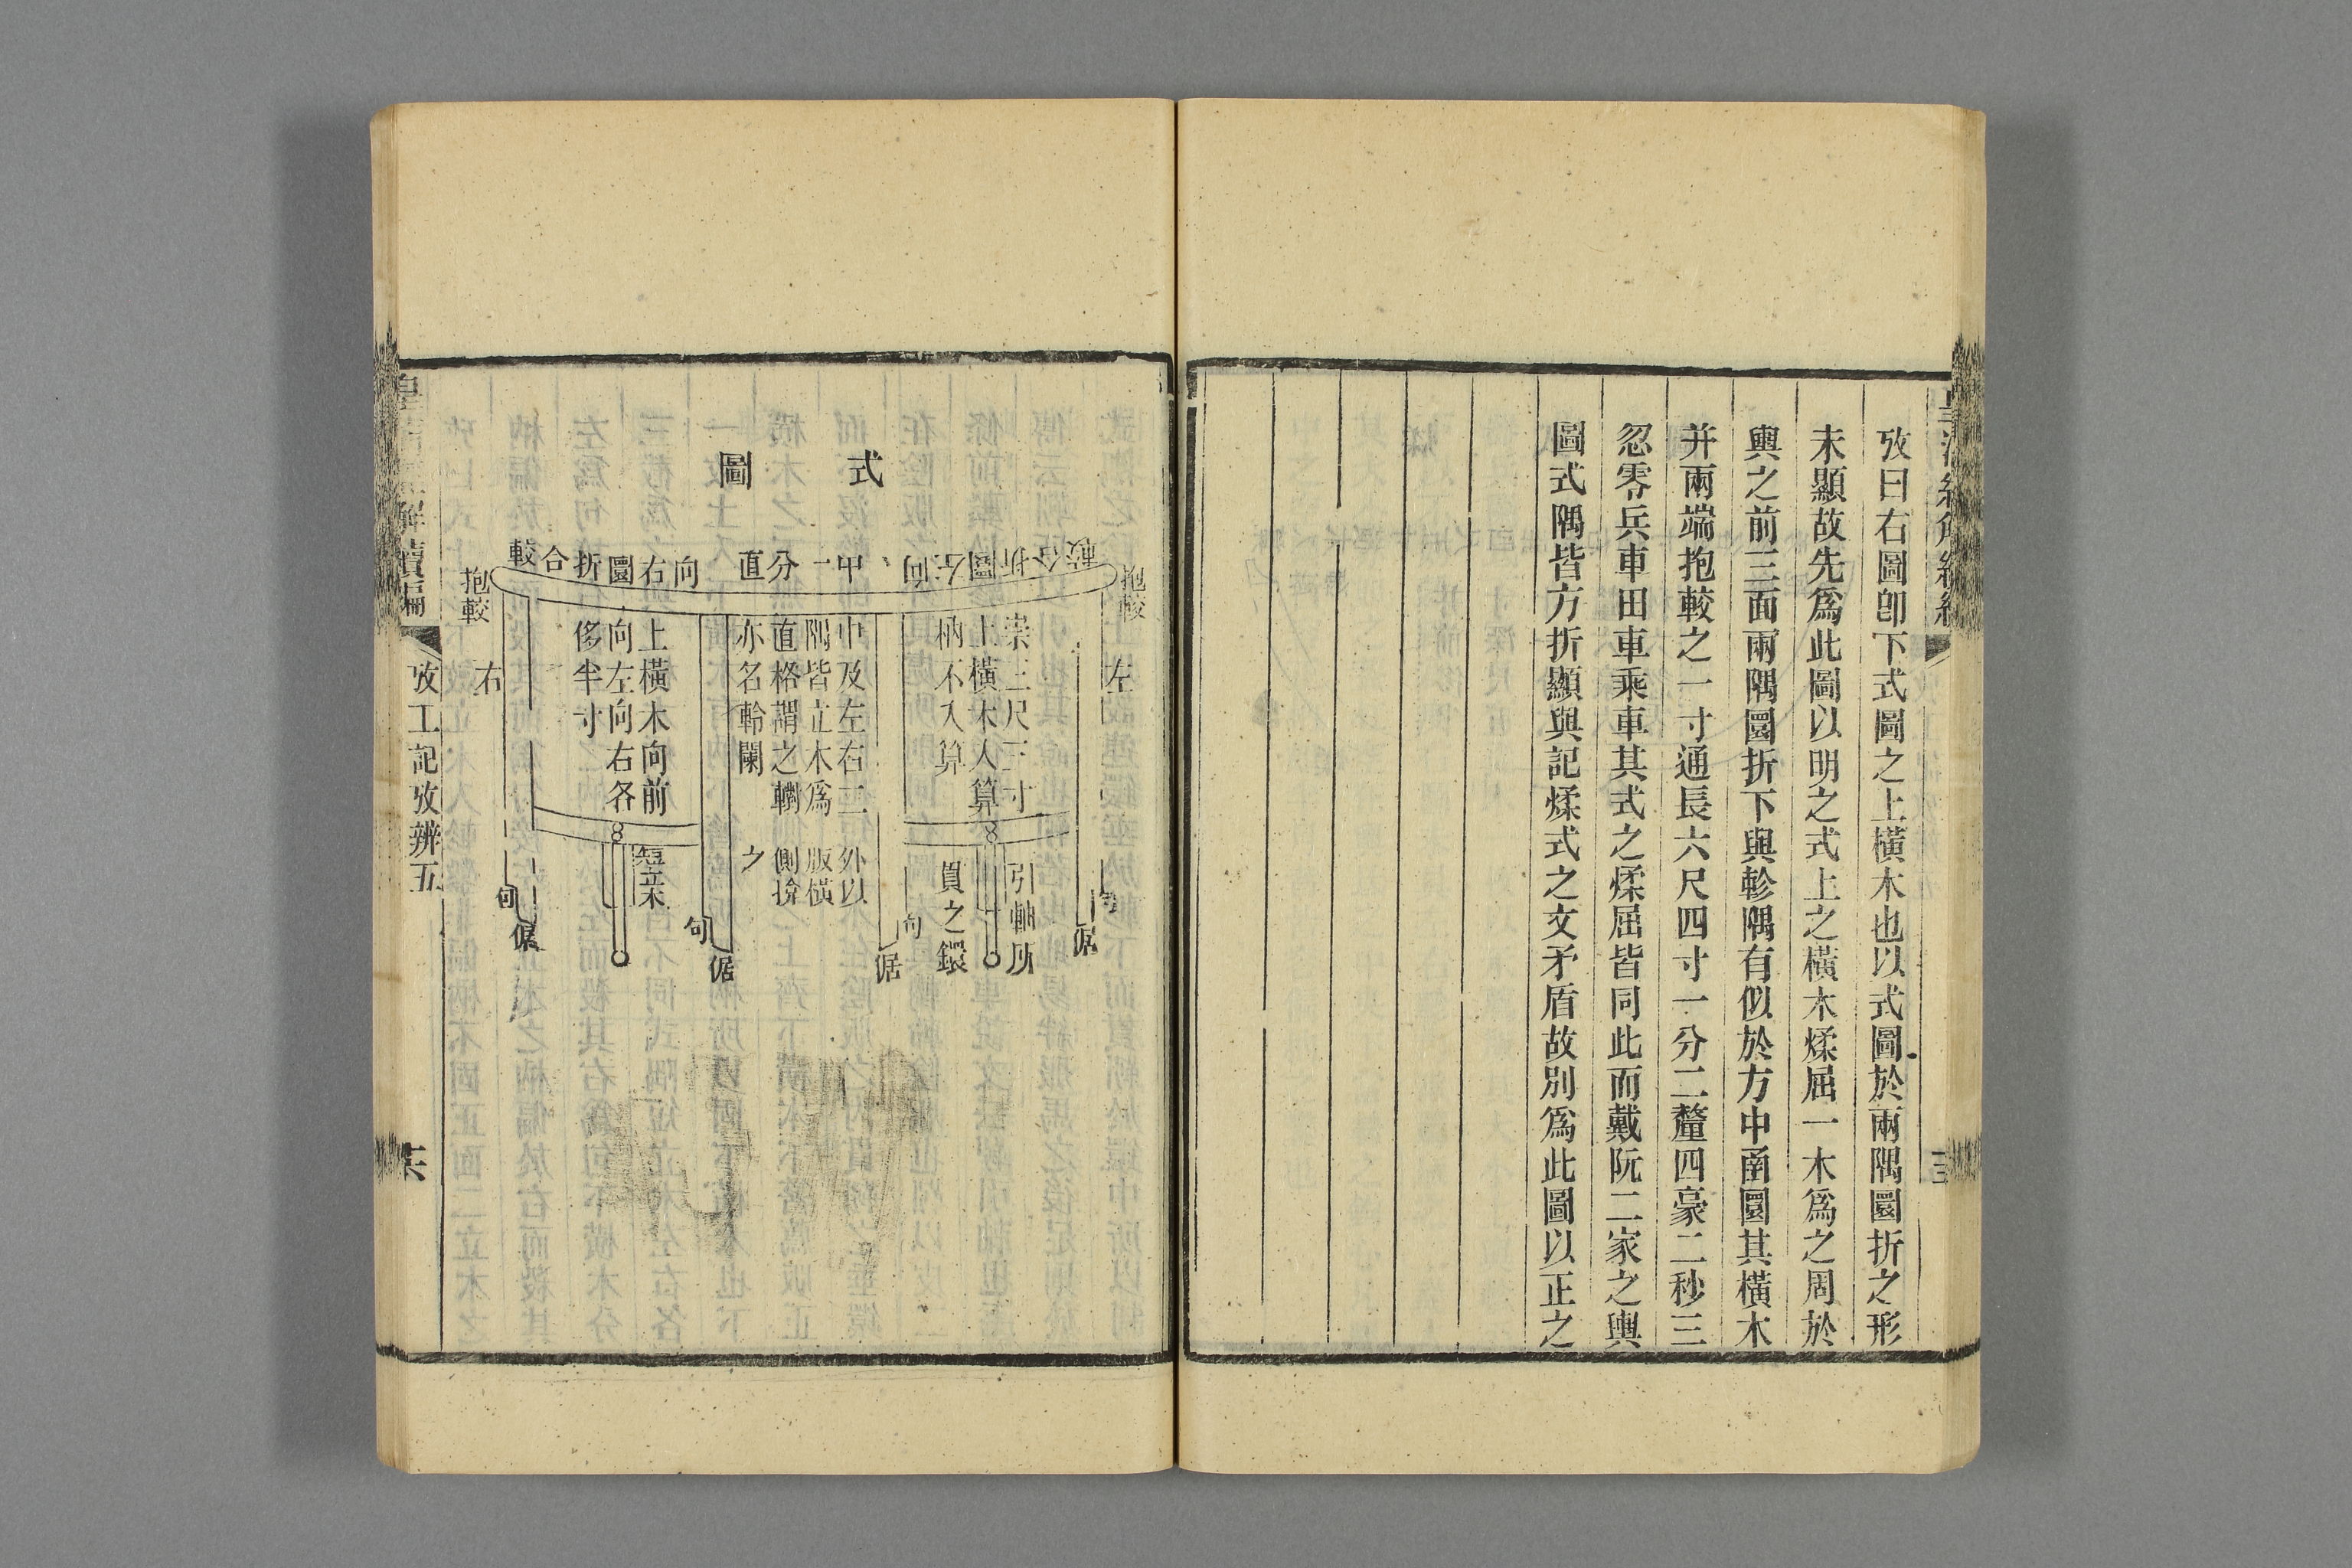 攷曰右圖卽下式圖之上橫木也以式圖於兩隅圜折之形
未顯故先爲此圖以明之式上之橫木煣屈一木爲之周於
輿之前三面兩隅圜折下與軫隅有似於方中函圜其橫木
并兩端抱較之一寸通長六尺四寸一分二釐四豪二秒三
忽零兵車田車乘車其式之煣屈皆同此而戴阮二家之輿
圖式隅皆方折顯與記煣式之文矛盾故別爲此圖以正之
式
圖
較合折圜左向
中一分直
向右圜折合較
抱較
左
崇三尺三寸
上橫木人算
柄不入算
引軸所
貫之鐶
中及左右二
隅皆立木爲
直格謂之轛
亦名軨闌
外以
版橫
側揜
之
上橫木向前
向左向右各
侈半寸
短立木
抱較
右
句
倨
句
倨
句
倨
句
倨
解續編
攷工記攷辨五